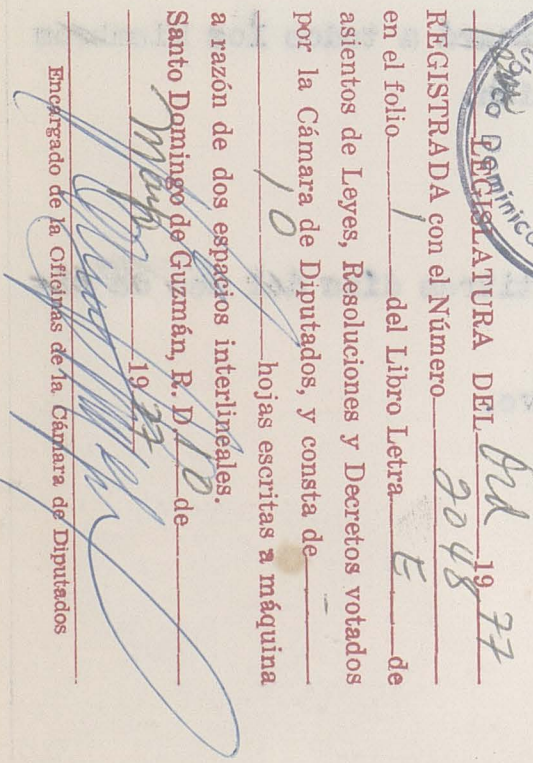 LEGISLATURA DEL Ord 1977
REGISTRADA con el Número 2048
en el folio 1 del Libro Letra E de
asientos de Leyes, Resoluciones y Decretos votados
por la Cámara de Diputados, y consta de
10 hojas escritas a máquina
a razón de dos espacios interlineales.
Santo Domingo de Guzmán, R. D. 10 de
1977
Encargado de la Oficinas de la Cámara de Diputados